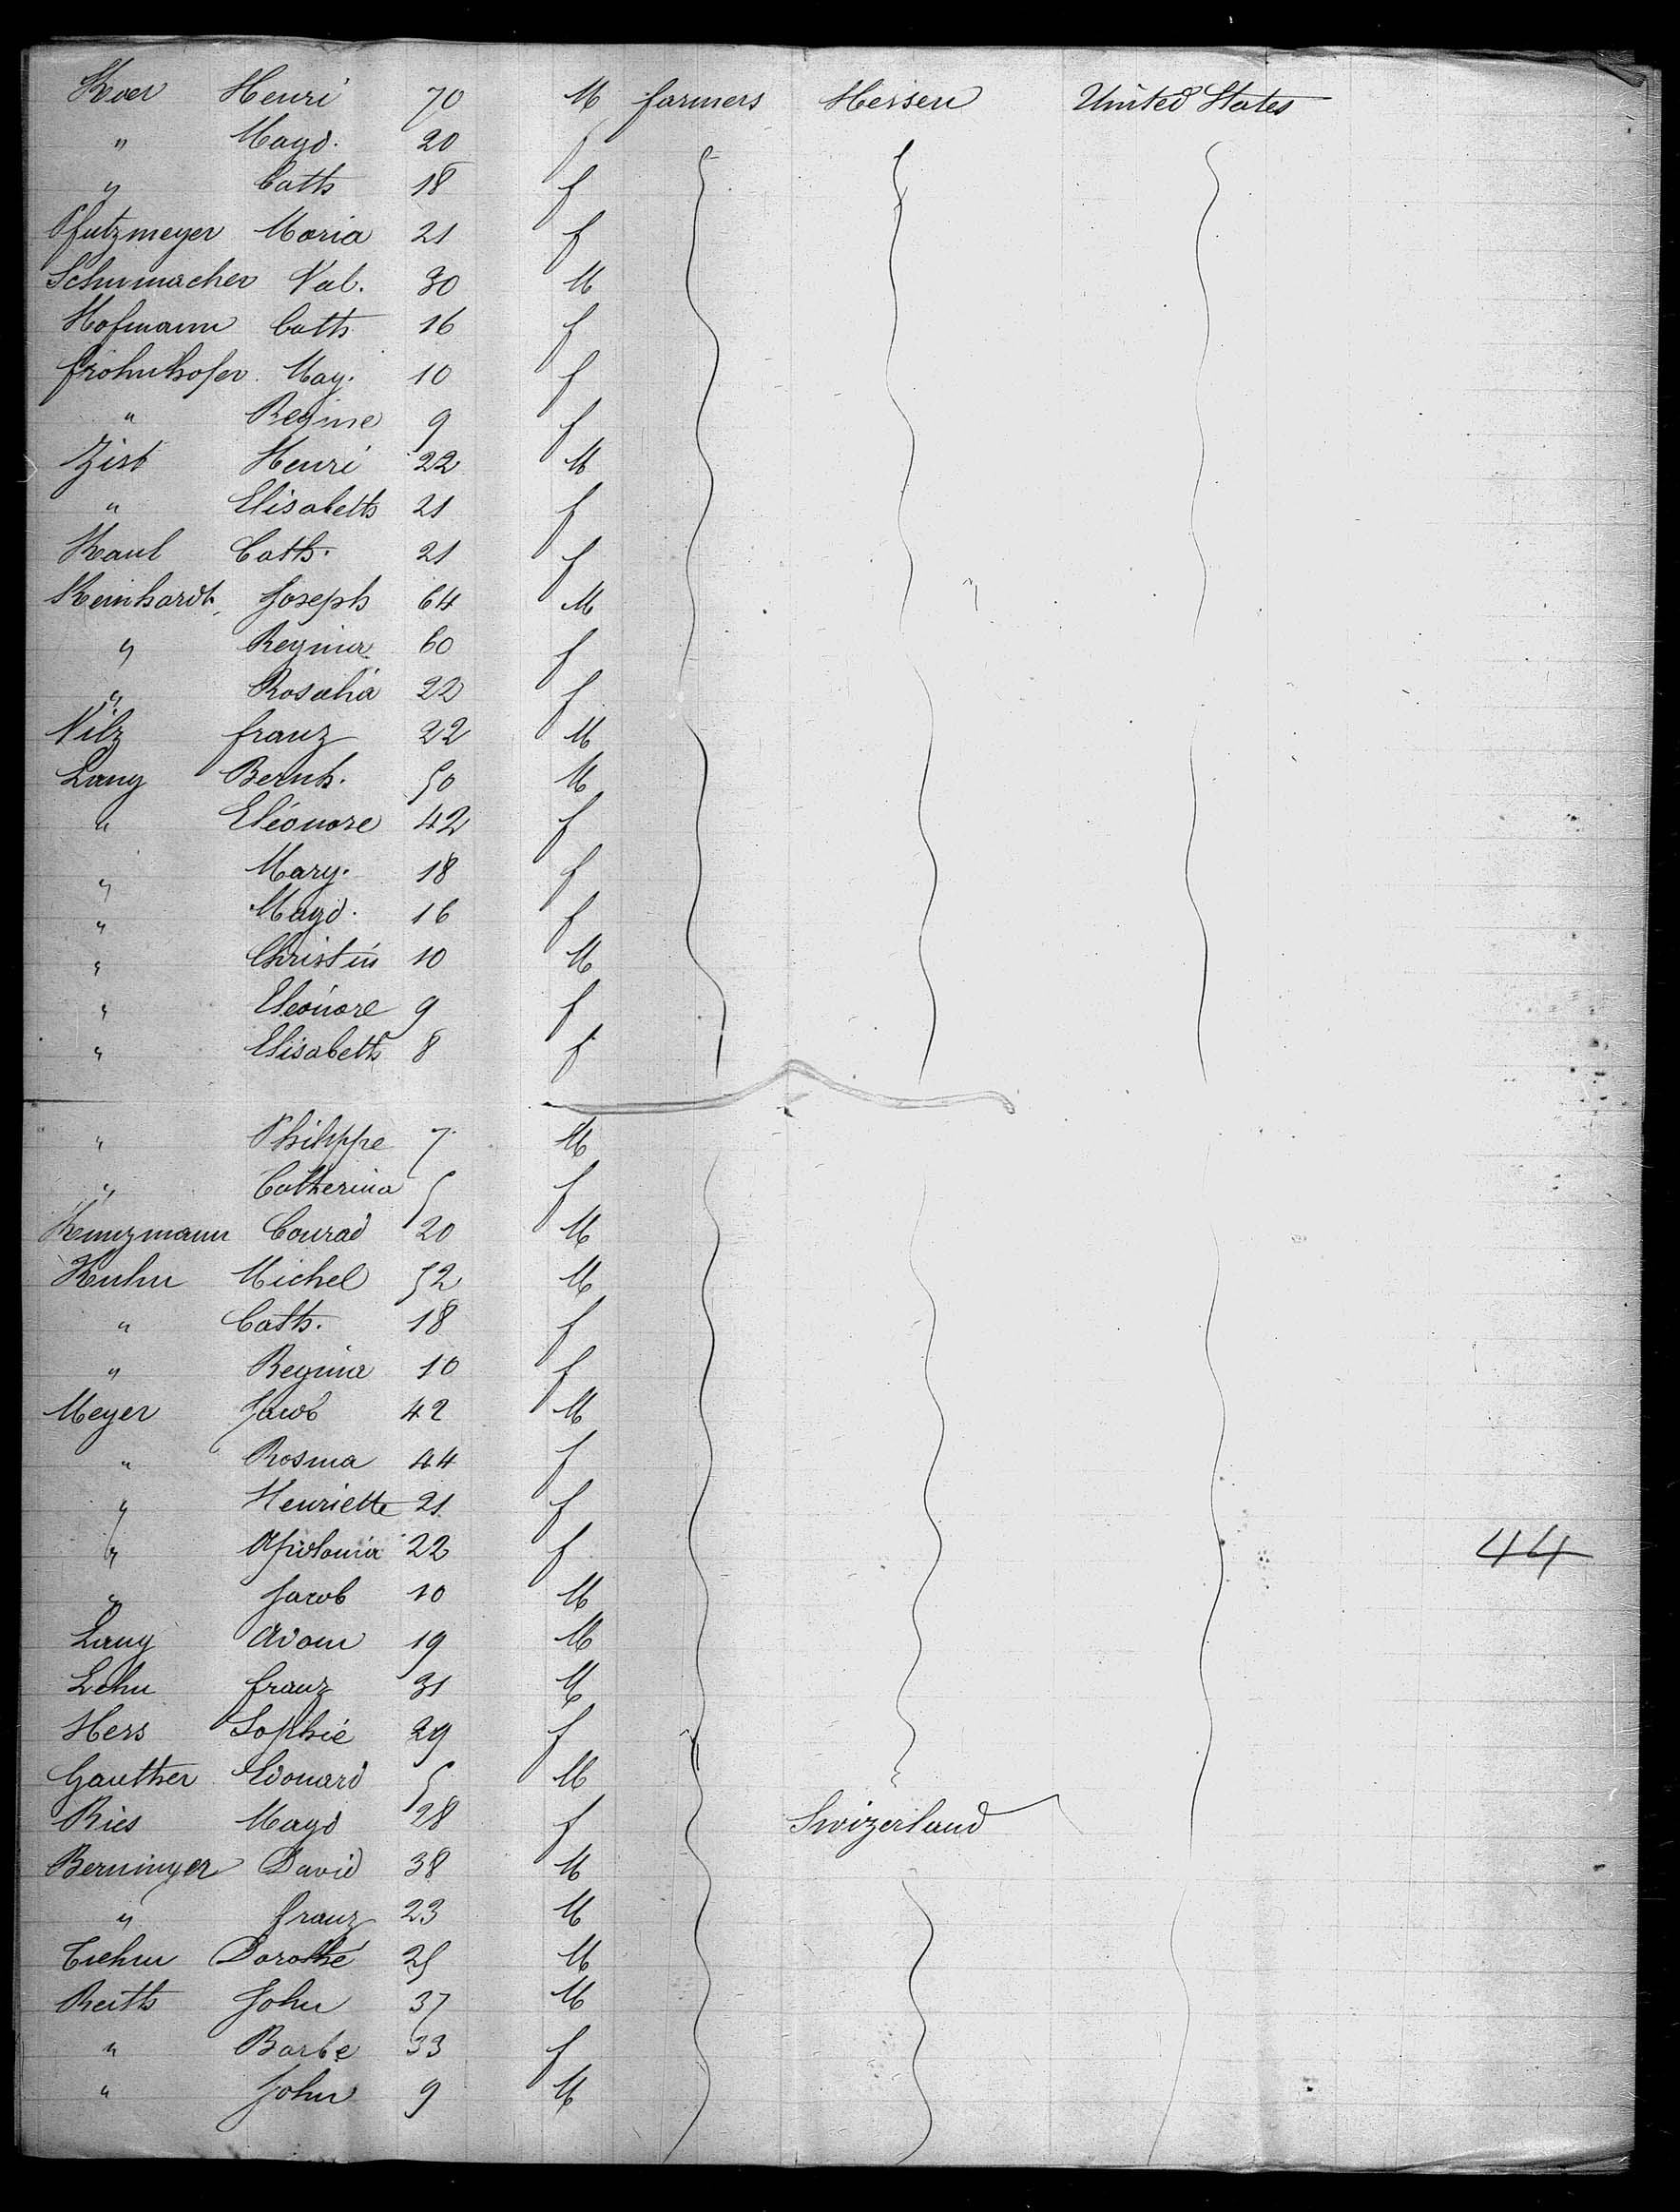 Koer Henri 70 M farmers Hessen United States
" Magd. 20 f
" Cath 18 f
Pfutzmeyer Maria 21 f
Schumacher Val. 30 M
Hofmann Cath 16 f
Frohnhofer Mag. 10 f
" Regine 9 f
Zist Henri 22 M
" Elisabeth 21 f
Kaul Cath. 21 f
Reinhardt Joseph 64 M
" Regina 60 f
" Rosalia 22 f
Nilz Franz 22 M
Lang Bernh. 50 M
" Eléonore 42 f
" Mary. 18 f
" Magd. 16 f
" Christin 10 M
" Eleonore 9 f
" Elisabeth 8 f
" Philippe 7 M
" Catherina 5 f
Kunzmann Conrad 20 M
Kuhn Michel 52 M
" Cath. 18 f
" Regina 10 f
Meyer Jacob 42 M
" Rosina 44 f
" Henriette 21 f
" Apolonia 22 f 44
" Jacob 10 M
Lang Adam 19 M
Lehn Franz 31 M
Hess Sophie 29 f
Gauther Edouard 5 M
Ries Magd 28 f Swizerland
Berninger David 38 M
" Franz 23 M
Dorothé 25 M
Reith John 37 M
" Barbe 33 f
" John 9 M